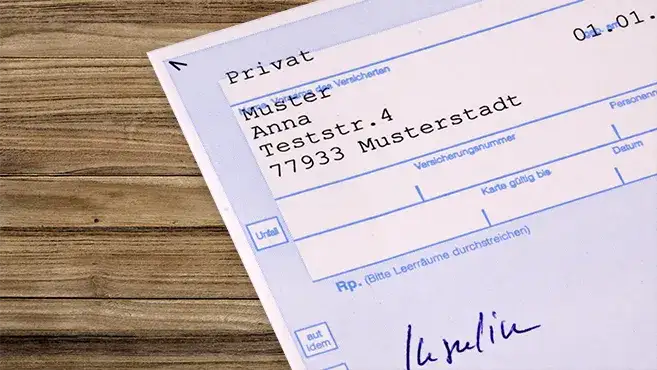 Privat
01.01.
geb. am
Name, Vorname des Versicherten
Muster
Anna
Teststr.4
77933 Musterstadt
Versicherungsnummer
Personen
Karte gültig bis
Datum
Unfall
Rp. (Bitte Leerräume durchstreichen)
aut
idem
Insulin